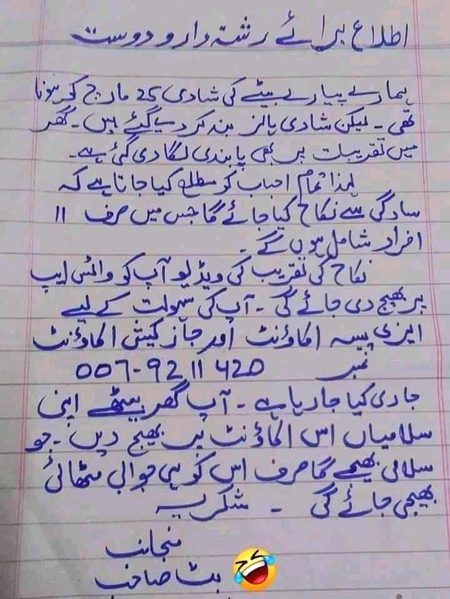 اطلاع برائے رشتہ دار و دوست
ہمارے پیارے بیٹے کی شادی 25 مارچ کو ہونا
تھی ۔ لیکن شادی ہالز بند کر دیے گئے ہیں ۔ گھر
میں تقریبات پر بھی پابندی لگا دی گئی ہے ۔
لہذا تمام احباب کو مطلع کیا جاتا ہے کہ
سادگی سے نکاح کیا جائے گا جس میں صرف 11
افراد شامل ہوں گے ۔
نکاح کی تقریب کی ویڈیو آپ کو واٹس ایپ
پر بھیج دی جائے گی ۔ آپ کی سہولت کے لیے
ایزی پیسہ اکاؤنٹ اور جاز کیش اکاؤنٹ
نمبر 007-92 11 420
جاری کیا جا رہا ہے ۔ آپ گھر بیٹھے اپنی
سلامیاں اس اکاؤنٹ میں بھیج دیں ۔ جو
سلامی بھیجے گا صرف اس کو ہی جوابی مٹھائی
بھیجی جائے گی ۔ شکریہ
منجانب
بٹ صاحب 🤣